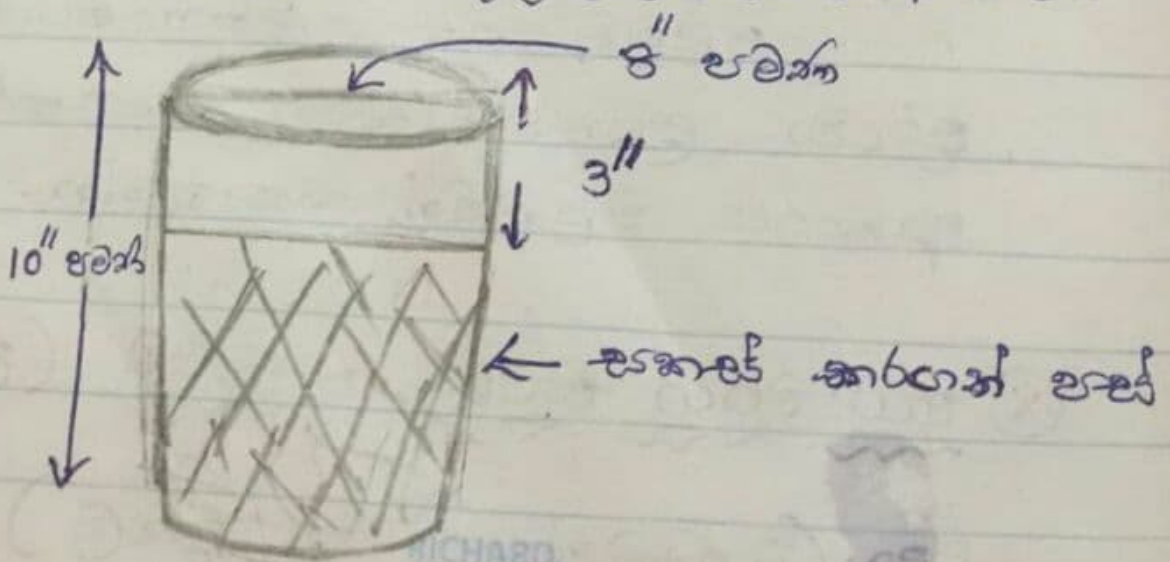 8" පමණ
3"
10" පමණ
සකස් කරගත් පස්
RICHARD